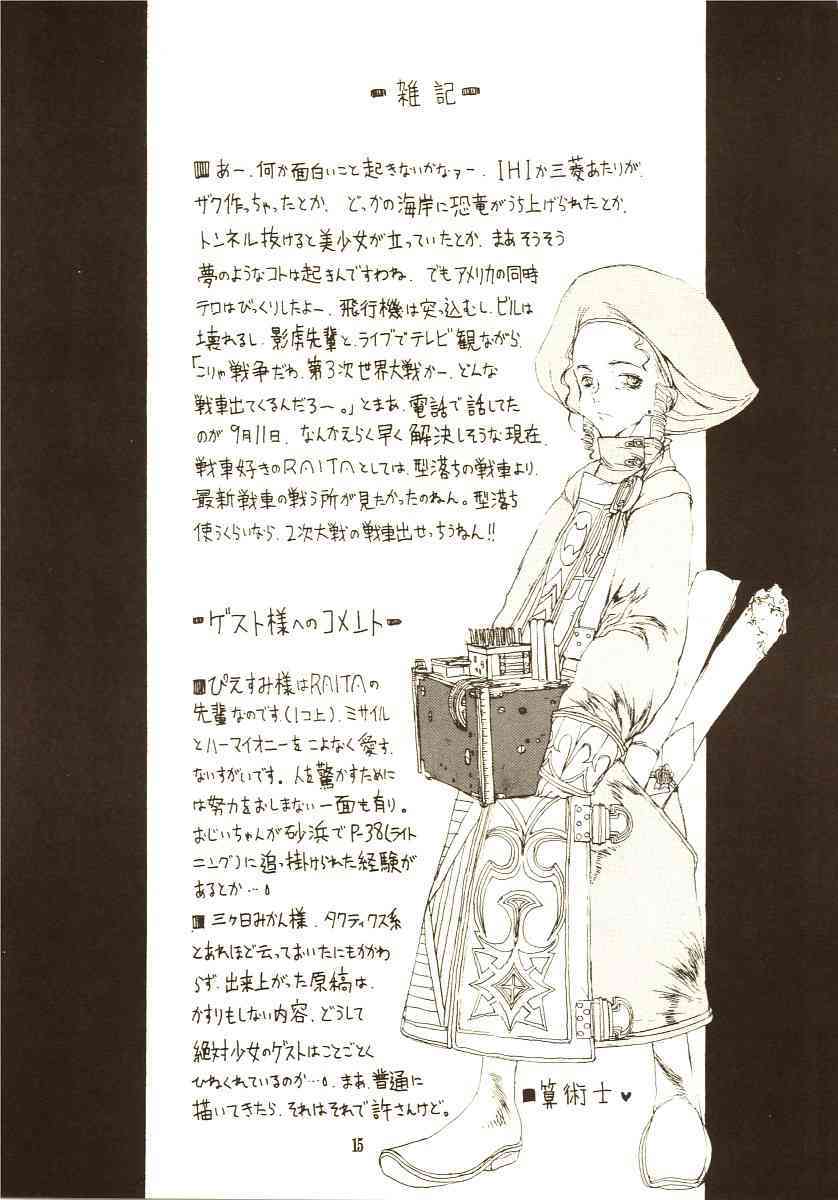 雑記
あー、何か面白いこと起きないかなァー、IHIか三菱あたりが、
ザク作っちゃったとか、どっかの海岸に恐竜がうち上げられたとか、
トンネル抜けると美少女が立っていたとか、まあそうそう
夢のようなコトは起きんですわね、でもアメリカの同時
テロはびっくりしたよー、飛行機は突っ込むし、ビルは
壊れるし、影虎先輩と、ライブでテレビ観ながら、
「こりゃ戦争だわ、第3次世界大戦かー、どんな
戦車出てくるんだろー。」とまあ、電話で話してた
のが9月11日、なんかえらく早く解決しそうな現在、
戦車好きのRAITAとしては、型落ちの戦車より、
最新戦車の戦う所が見たかったのねん。型落ち
使うくらいなら、2次大戦の戦車出せっちうねん!!
ゲスト様へのコメント
ぴえすみ様はRAITAの
先輩なのです(1コ上)、ミサイル
とハーマイオニーをこよなく愛す、
ないすがいです。人を驚かすために
は努力をおしまない一面も有り。
おじいちゃんが砂浜でP-38(ライト
ニング)に追っ掛けられた経験が
あるとか…。
三ヶ日みかん様、タクティクス系
とあれほど云っておいたにもかかわ
らず、出来上がった原稿は、
かすりもしない内容、どうして
絶対少女のゲストはことごとく
ひねくれているのか…。まあ、普通に
描いてきたら、それはそれで許さんけど。
算術士♥
15